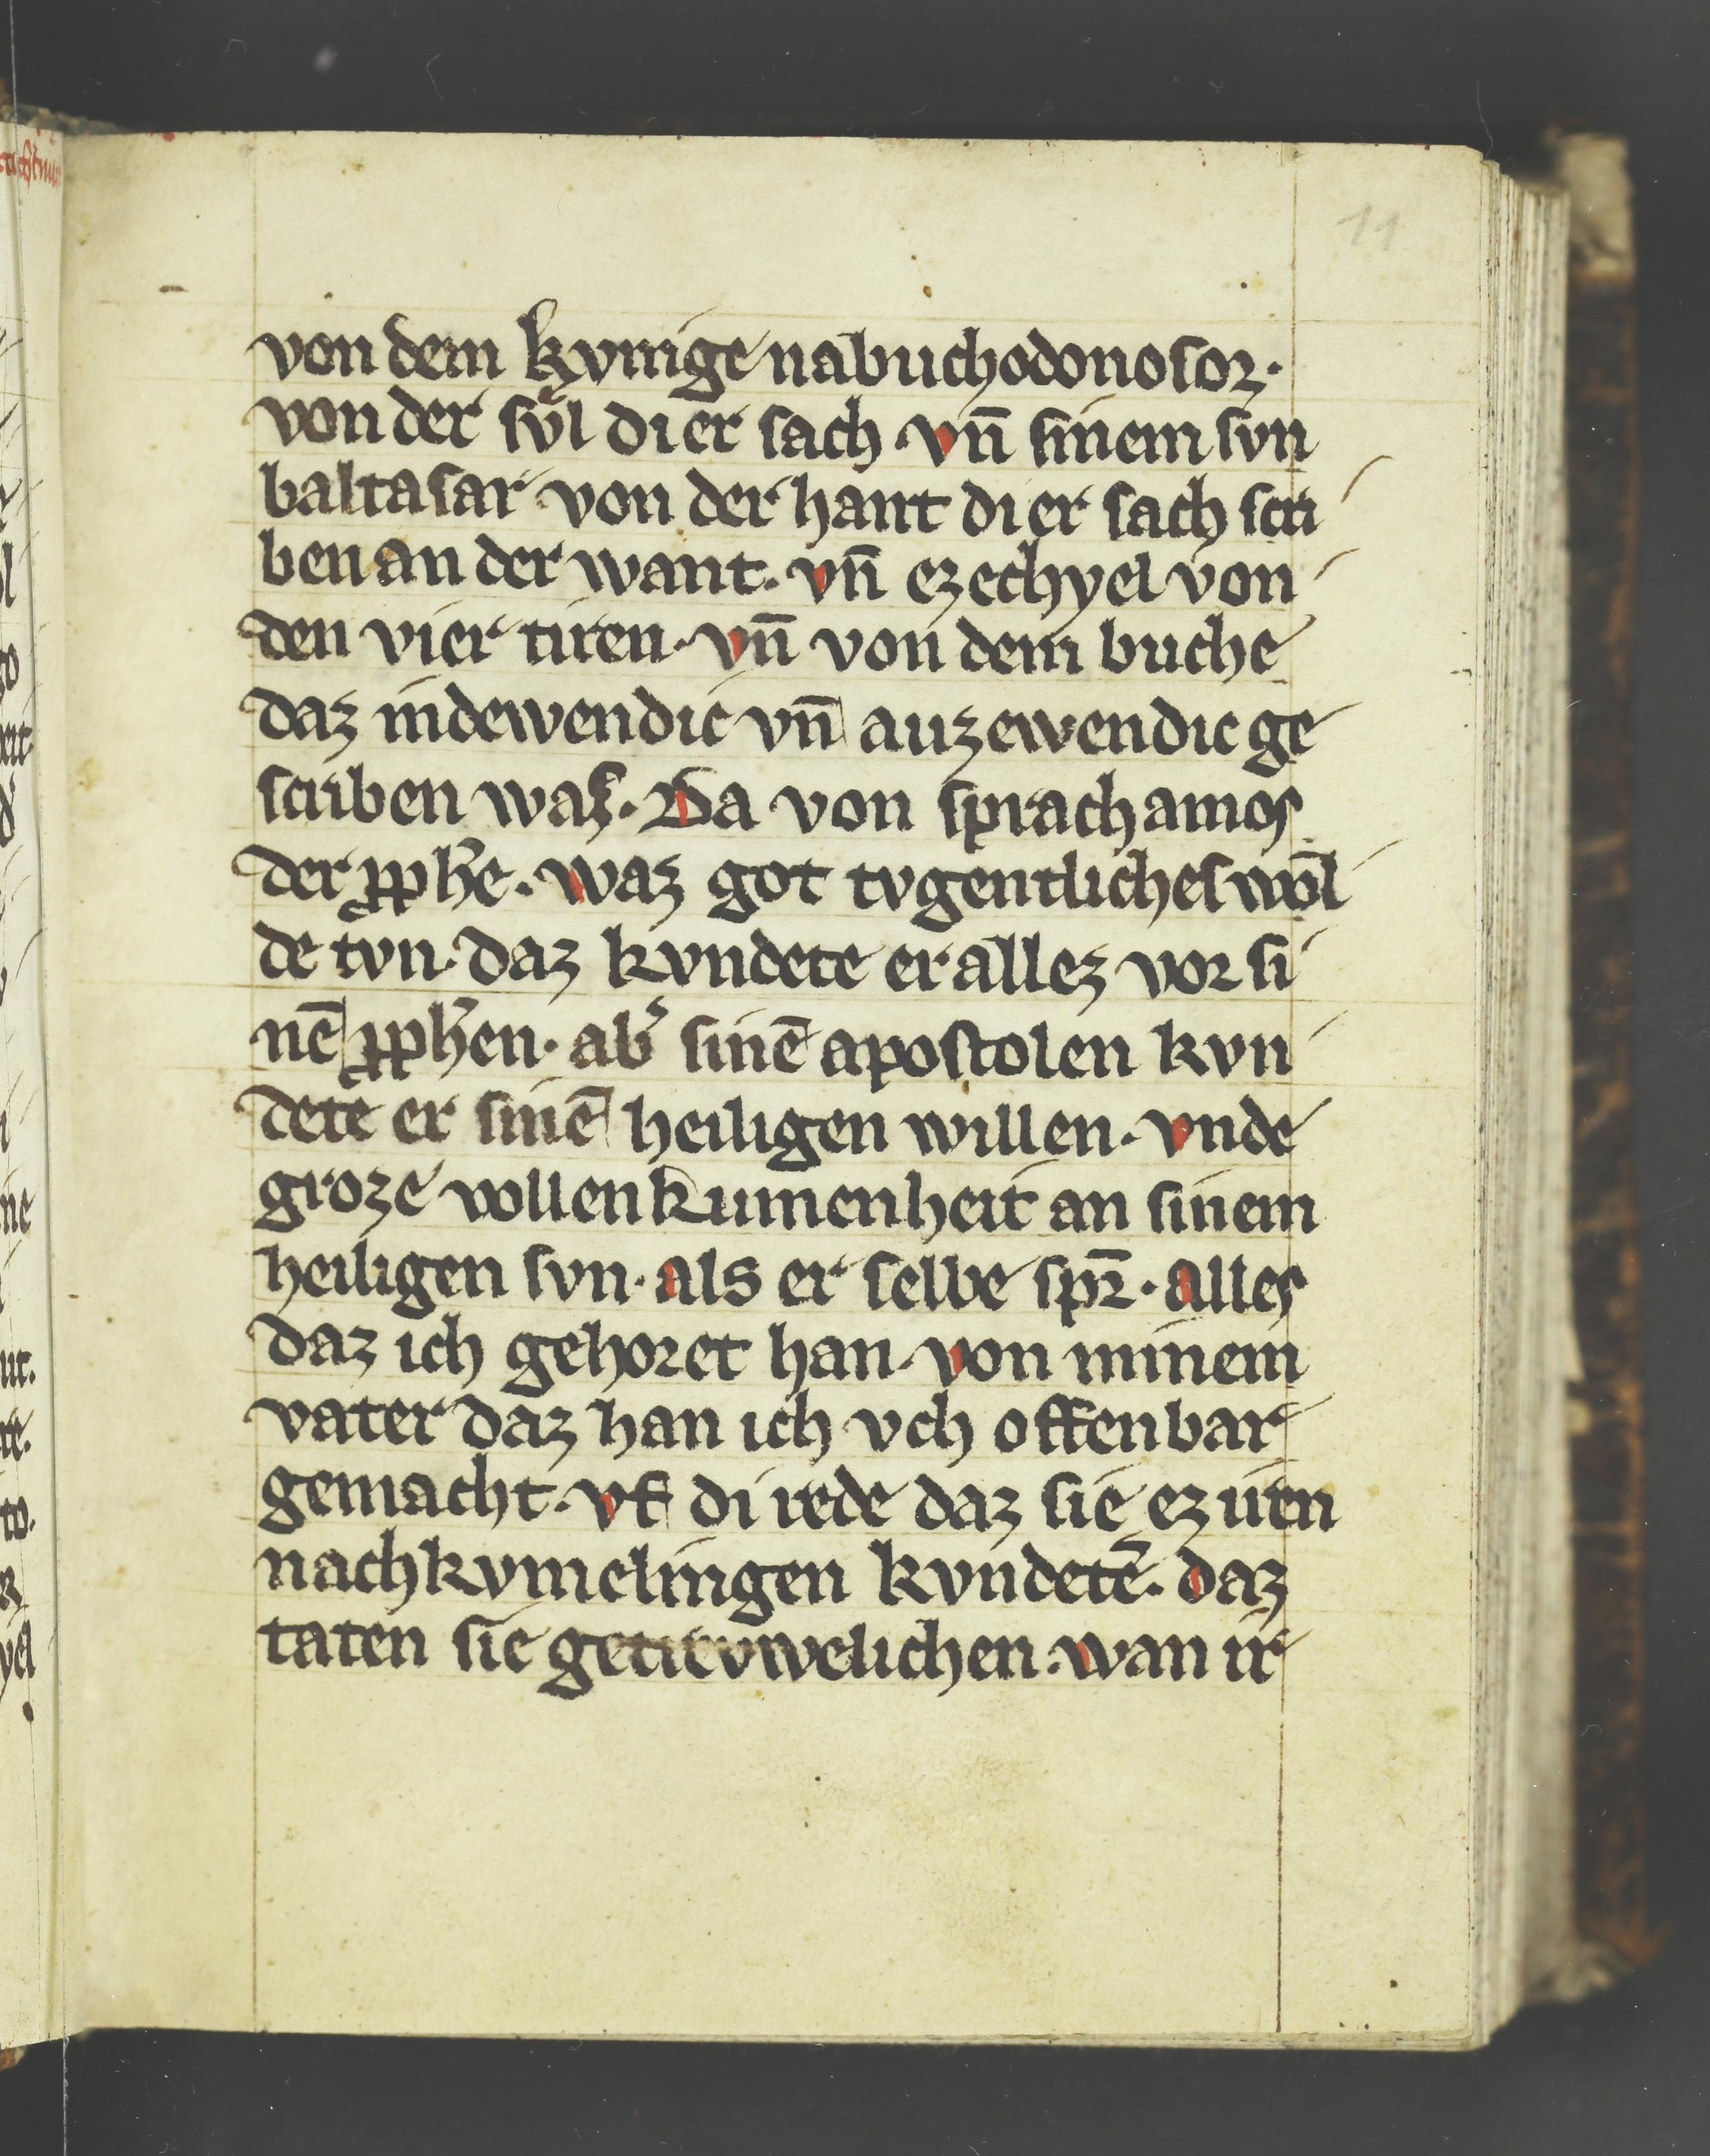 11
von dem kvnige nabuchodonosor·
von der svͤl di er sach · vn̄ sinem svn
baltasar von der hant di er sach scri
ben an der want. vn̄ ezechyel von
den vier tiren. vn̄ von dem buche
daz indewendic vn̄ auzewendic ge
scriben was. Da von sprach amos
der ꝓph̄e. waz got tvgentliches wol
de tvn. daz kvndete er allez vor si
nē ꝓph̄en. ab᾽ sinē apostolen kvn
dete er sinē heiligen willen. vnde
groze vollenkumenheit an sinem
heiligen svn. als er selbe spr̄. alles
daz ich gehoret han. von minem
vater daz han ich vch offenbar
gemacht. vf di rede daz sie ez iren
nachkvmelingen kvndetē. daz
taten sie getrevwelichen. wan ir